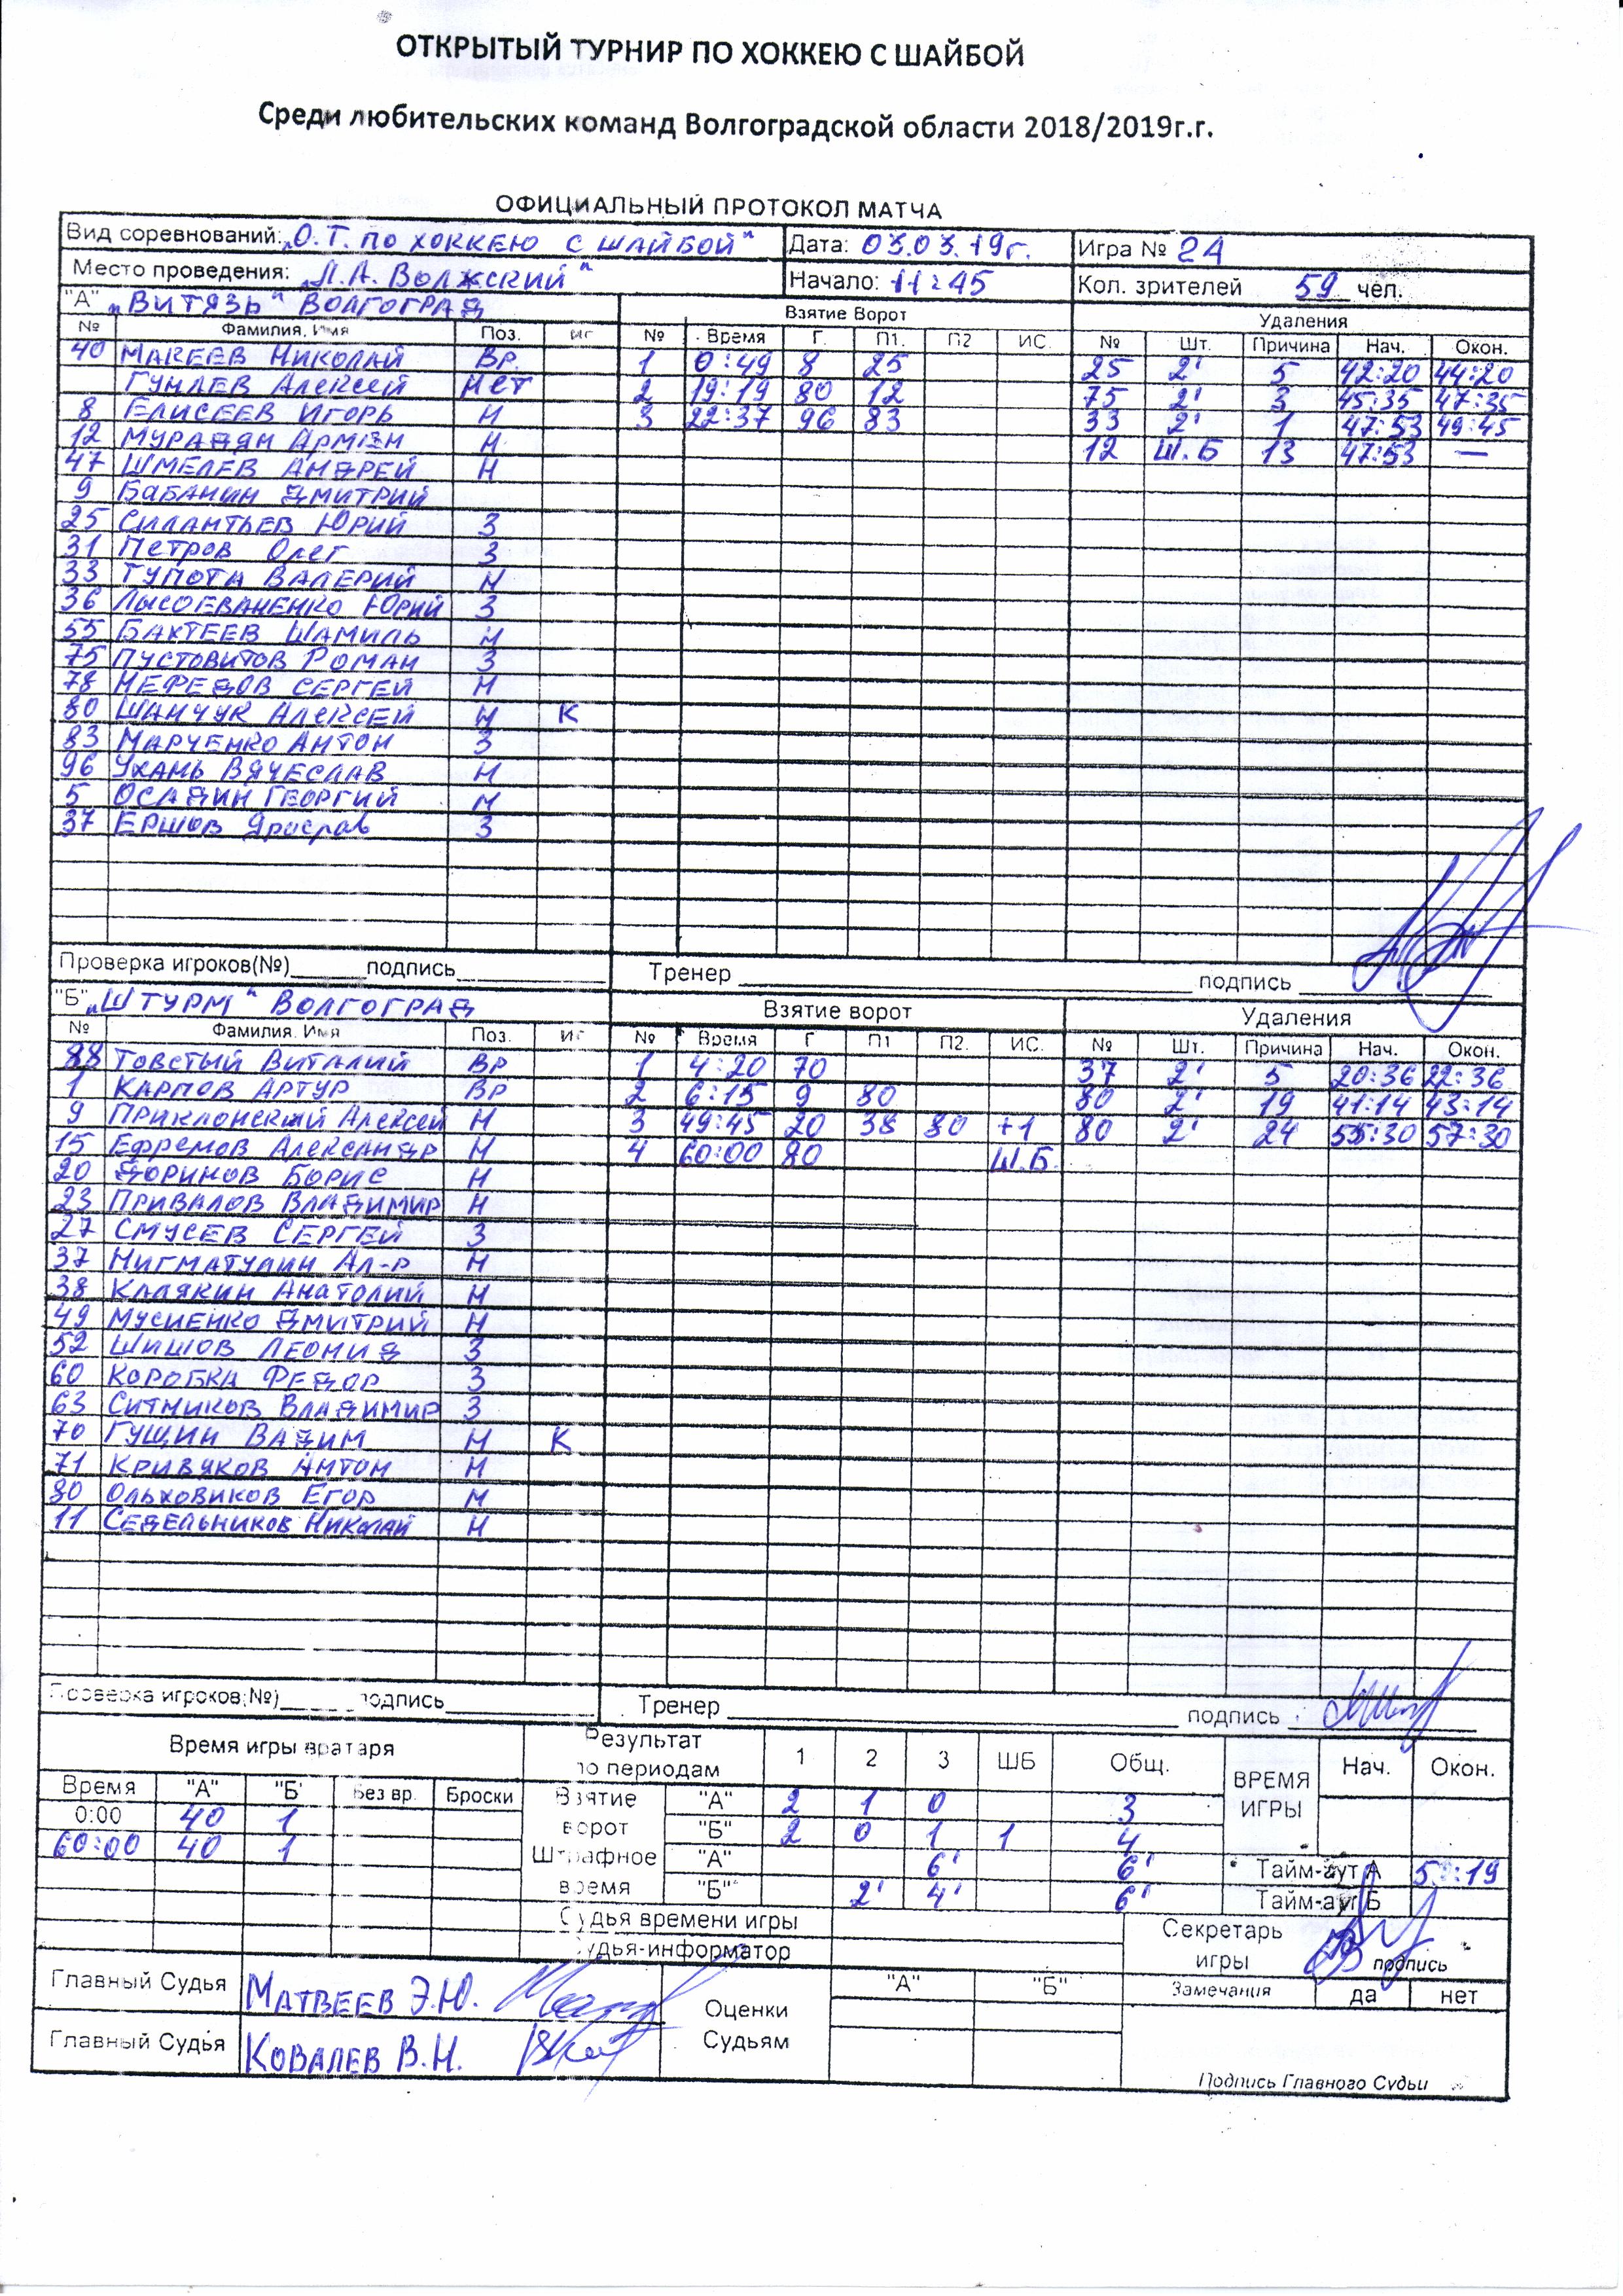 ОТКРЫТЫЙ ТУРНИР ПО ХОККЕЮ С ШАЙБОЙ
Среди любительских команд Волгоградской области 2018/2019г.г.
ОФИЦИАЛЬНЫЙ ПРОТОКОЛ МАТЧА
Вид соревнований: „О.Т. ПО ХОККЕЮ С ШАЙБОЙ" Дата: 03.03.19г. Игра № 24
Место проведения: „Л.А. ВОЛЖСКИЙ" Начало: 11:45 Кол. зрителей 59 чел.
"А" „ВИТЯЗЬ" ВОЛГОГРАД Взятие Ворот Удаления
№ Фамилия, Имя Поз. ИГ № Время Г. П1. П2 ИС. № Шт. Причина Нач. Окон.
40 МАКЕЕВ НИКОЛАЙ ВР. 1 0:49 8 25 25 2' 5 42:20 44:20
АЛЕКСЕЙ НЕТ 2 19:19 80 12 75 2' 3 45:35 47:35
8 ЕЛИСЕЕВ ИГОРЬ Н 3 22:37 96 83 33 2' 1 47:53 49:45
12 МУРАДЯН АРМЕН Н 12 Ш.Б 13 47:53 —
47 ШМЕЛЕВ АНДРЕЙ Н
9 БАБАНИН ДМИТРИЙ
25 СИЛАНТЬЕВ ЮРИЙ З
31 ПЕТРОВ ОЛЕГ З
33 ТУПОТА ВАЛЕРИЙ Н
36 ЮРИЙ З
55 БАКТЕЕВ ШАМИЛЬ Н
75 ПУСТОВИТОВ РОМАН З
78 НЕФЕДОВ СЕРГЕЙ Н
80 ШАНЧУК АЛЕКСЕЙ Н К
83 МАРЧЕНКО АНТОН З
96 УХАНЬ ВЯЧЕСЛАВ Н
5 ОСАДИН ГЕОРГИЙ Н
37 ЕРШОВ Ярослав З
Проверка игроков(№)______подпись__________ Тренер __________ подпись __________
"Б" „ШТУРМ" ВОЛГОГРАД Взятие ворот Удаления
№ Фамилия, Имя Поз. ИГ № Время Г П1 П2. ИС. № Шт. Причина Нач. Окон.
88 ТОВСТЫЙ ВИТАЛИЙ ВР 1 4:20 70 37 2' 5 20:36 22:36
1 КАРПОВ АРТУР ВР 2 6:15 9 80 80 2' 19 41:14 43:14
9 ПРИКЛОНСКИЙ АЛЕКСЕЙ Н 3 49:45 20 38 80 +1 80 2' 24 55:30 57:30
15 ЕФРЕМОВ АЛЕКСАНДР Н 4 60:00 80 Ш.Б.
20 ДОРИНОВ БОРИС Н
23 ПРИВАЛОВ ВЛАДИМИР Н
27 СМУСЕВ СЕРГЕЙ З
37 НИГМАТУЛИН АЛ-Р Н
38 КАЛЯКИН АНАТОЛИЙ Н
49 МУСИЕНКО ДМИТРИЙ Н
52 ШИШОВ ЛЕОНИД З
60 КОРОБКА ФЕДОР З
63 СИТНИКОВ ВЛАДИМИР З
70 ГУЩИН ВАДИМ Н К
71 КРИВЯКОВ АНТОН Н
80 ОЛЬХОВИКОВ ЕГОР Н
11 СЕДЕЛЬНИКОВ НИКОЛАЙ Н
Проверка игроков(№)______подпись__________ Тренер __________ подпись __________
Время игры вратаря Результат по периодам 1 2 3 ШБ Общ. ВРЕМЯ ИГРЫ Нач. Окон.
Время "А" "Б" Без вр. Броски Взятие ворот "А" 2 1 0 3
0:00 40 1 "Б" 2 0 1 1 4
60:00 40 1 Штрафное время "А" 6' 6' Тайм-аут А
"Б" 2' 4' 6' Тайм-аут Б
Судья времени игры Секретарь игры подпись
Судья-информатор
Главный Судья МАТВЕЕВ Э.Ю. Оценки Судьям "А" "Б" Замечания да нет
Главный Судья КОВАЛЕВ В.Н.
Подпись Главного Судьи